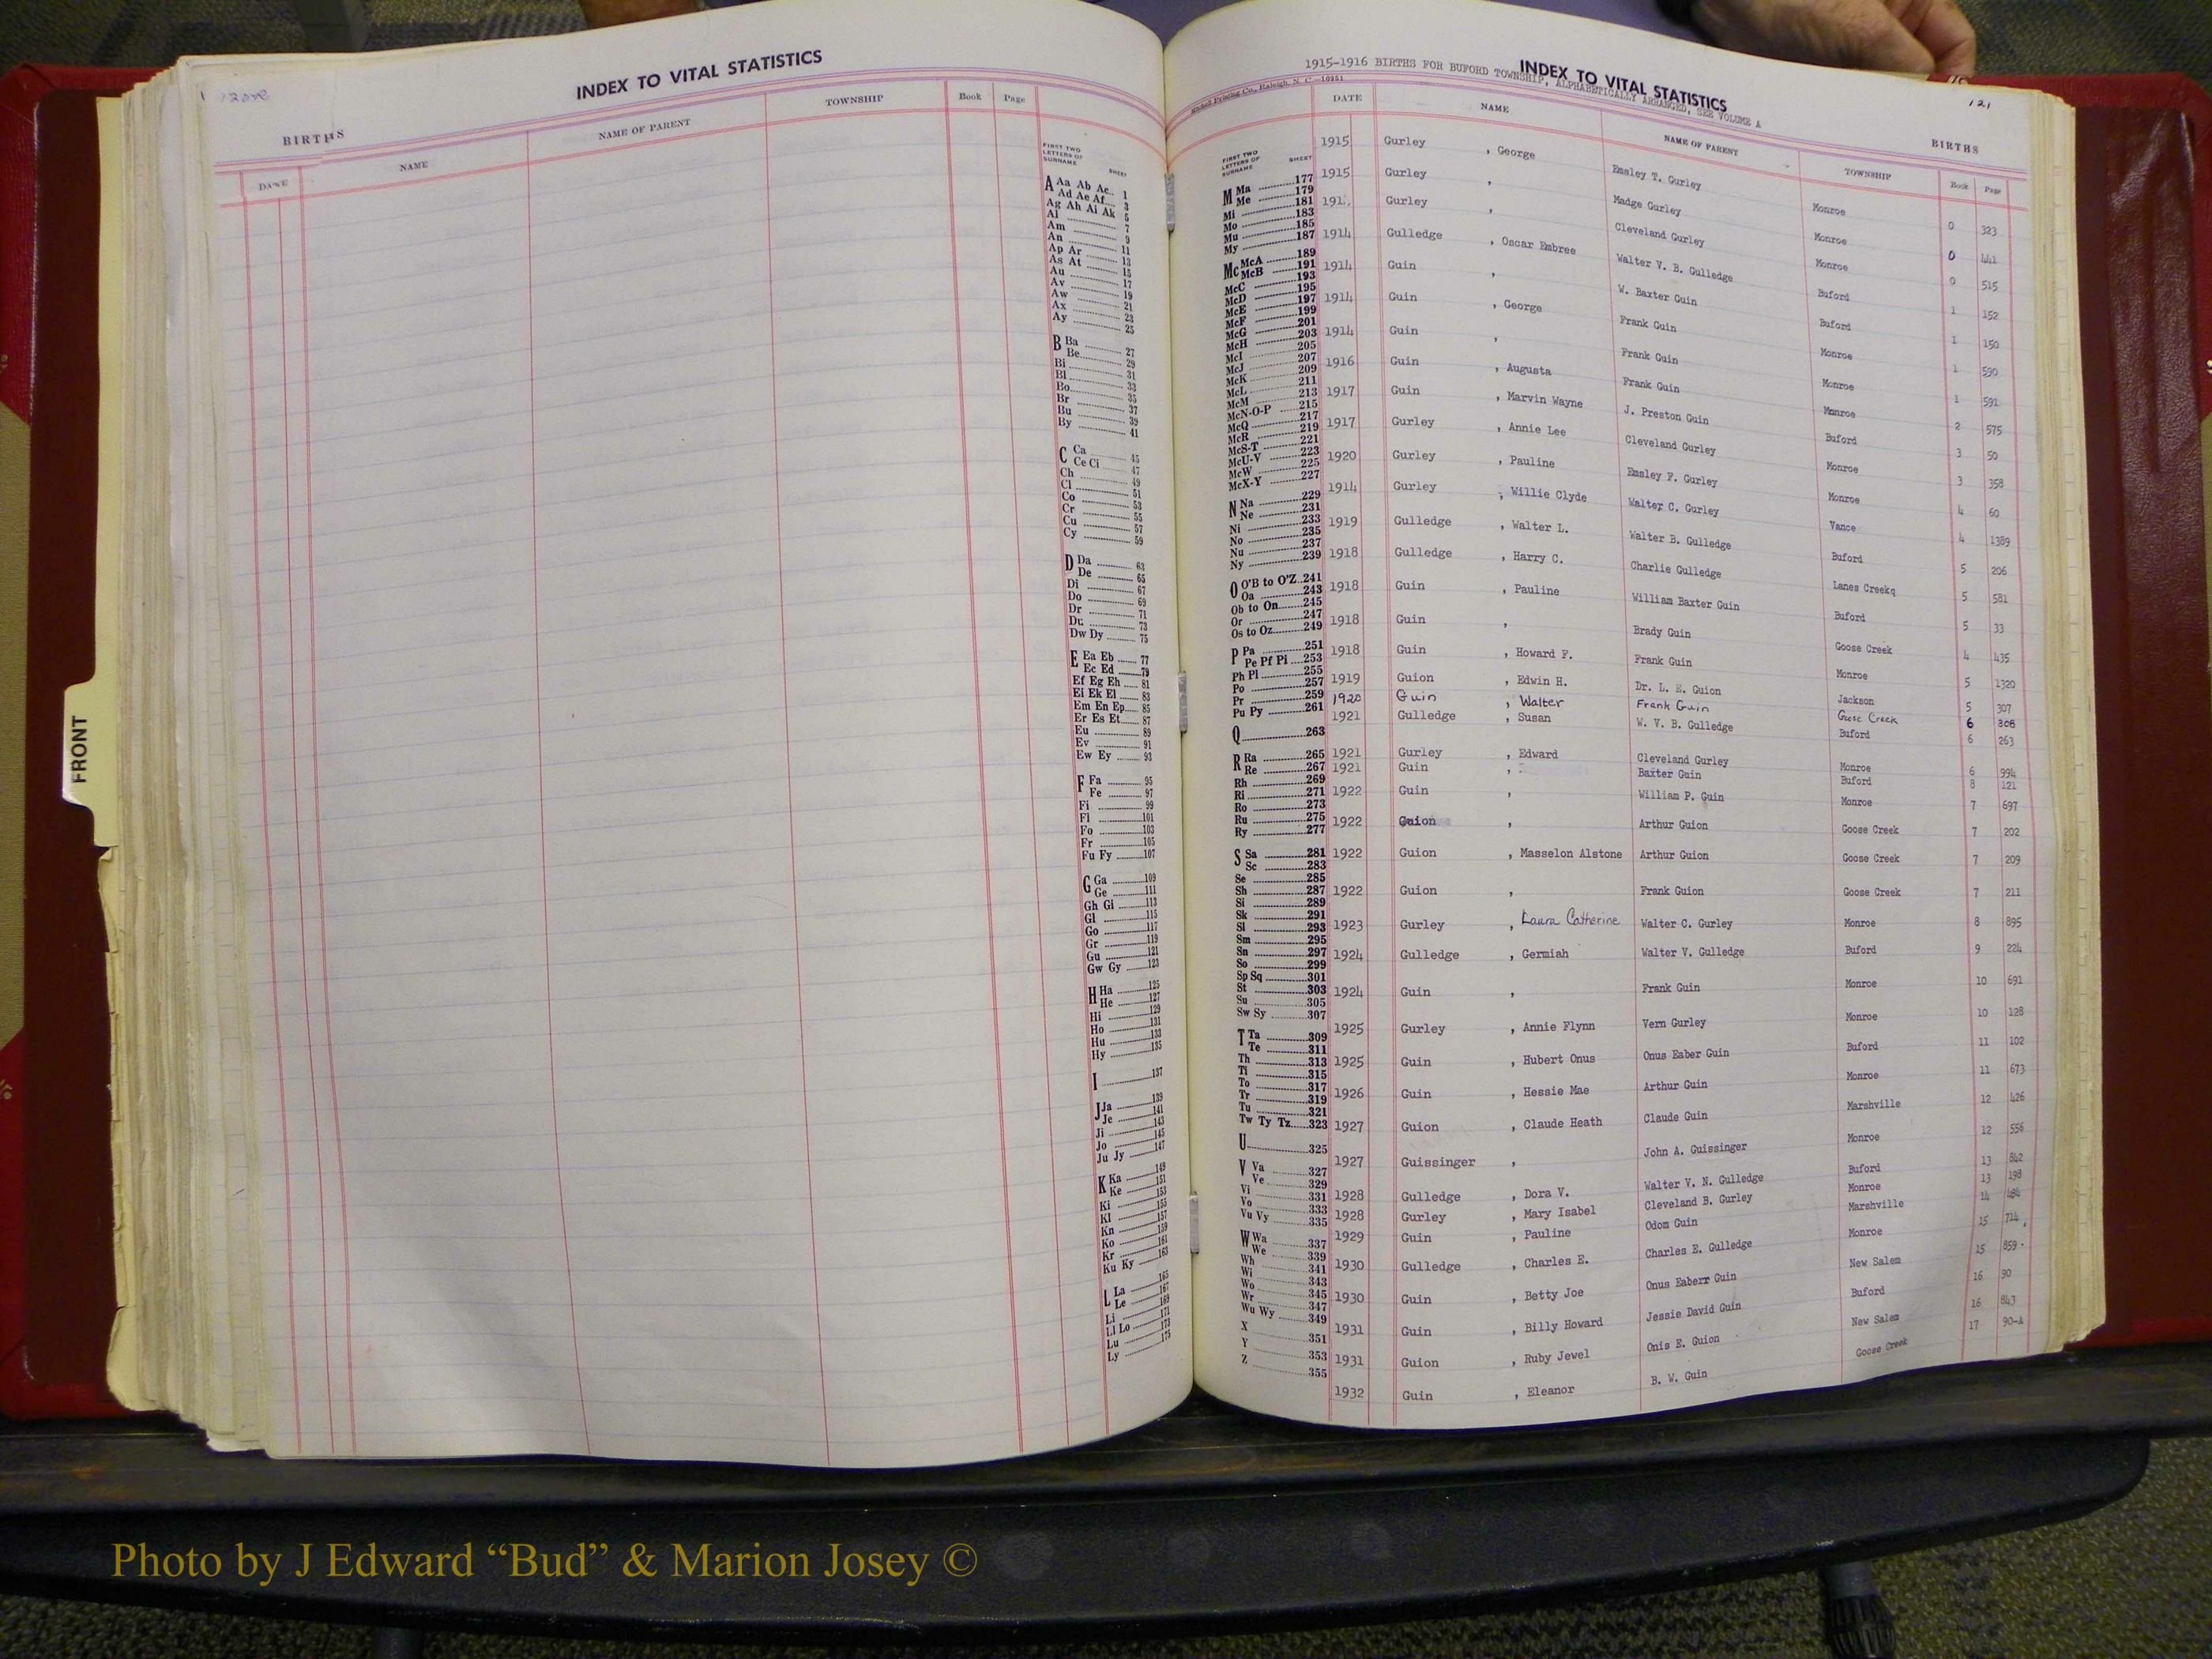 1202
INDEX TO VITAL STATISTICS
BIRTHS
DATE NAME NAME OF PARENT TOWNSHIP Book Page
FIRST TWO LETTERS OF SURNAME SHEET
A Aa Ab Ac 1
Ad Ae Af 3
Ag Ah Ai Ak 5
Al 7
Am 9
An 11
Ap Ar 13
As At 15
Au 17
Av 19
Aw 21
Ax 23
Ay 25
B Ba 27
Be 29
Bi 31
Bl 33
Bo 35
Br 37
Bu 39
By 41
C Ca 45
Ce Ci 47
Ch 49
Cl 51
Co 53
Cr 55
Cu 57
Cy 59
D Da 63
De 65
Di 67
Do 69
Dr 71
Du 73
Dw Dy 75
E Ea Eb 77
Ec Ed 79
Ef Eg Eh 81
Ei Ek El 83
Em En Ep 85
Er Es Et 87
Eu 89
Ev 91
Ew Ey 93
F Fa 95
Fe 97
Fi 99
Fl 101
Fo 103
Fr 105
Fu Fy 107
G Ga 109
Ge 111
Gh Gi 113
Gl 115
Go 117
Gr 119
Gu 121
Gw Gy 123
H Ha 125
He 127
Hi 129
Ho 131
Hu 133
Hy 135
I 137
J Ja 139
Je 141
Ji 143
Jo 145
Ju Jy 147
K Ka 149
Ke 151
Ki 153
Kl 155
Kn 157
Ko 159
Kr 161
Ku Ky 163
L La 165
Le 167
Li 169
Ll Lo 171
Lu 173
Ly 175
FRONT
1915-1916 BIRTHS FOR BUFORD TOWNSHIP, ALPHABETICALLY ARRANGED, SEE VOLUME A
INDEX TO VITAL STATISTICS
Printing Co., Raleigh, N. C.—10951
121
BIRTHS
DATE NAME NAME OF PARENT TOWNSHIP Book Page
FIRST TWO LETTERS OF SURNAME SHEET
M Ma 177
Me 179
Mi 181
Mo 183
Mu 185
My 187
Mc McA 189
McB 191
McC 193
McD 195
McE 197
McF 199
McG 201
McH 203
McI 205
McJ 207
McK 209
McL 211
McM 213
McN-O-P 215
McQ 217
McR 219
McS-T 221
McU-V 223
McW 225
McX-Y 227
N Na 229
Ne 231
Ni 233
No 235
Nu 237
Ny 239
O O'B to O'Z 241
Oa 243
Ob to On 245
Or 247
Os to Oz 249
P Pa 251
Pe Pf Pi 253
Ph Pl 255
Po 257
Pr 259
Pu Py 261
Q 263
R Ra 265
Re 267
Rh 269
Ri 271
Ro 273
Ru 275
Ry 277
S Sa 281
Sc 283
Se 285
Sh 287
Si 289
Sk 291
Sl 293
Sm 295
Sn 297
So 299
Sp Sq 301
St 303
Su 305
Sw Sy 307
T Ta 309
Te 311
Th 313
Ti 315
To 317
Tr 319
Tu 321
Tw Ty Tz 323
U 325
V Va 327
Ve 329
Vi 331
Vo 333
Vu Vy 335
W Wa 337
We 339
Wh 341
Wi 343
Wo 345
Wr 347
Wu Wy 349
X 351
Y 353
Z 355
1915 Gurley , George Emsley T. Gurley Monroe 0 323
1915 Gurley , Madge Gurley Monroe 0 441
191 Gurley , Cleveland Gurley Monroe 0 515
1914 Gulledge , Oscar Embree Walter V. B. Gulledge Buford 1 152
1914 Guin , W. Baxter Guin Buford 1 150
1914 Guin , George Frank Guin Monroe 1 590
1914 Guin , Frank Guin Monroe 1 591
1916 Guin , Augusta Frank Guin Monroe 2 575
1917 Guin , Marvin Wayne J. Preston Guin Buford 3 50
1917 Gurley , Annie Lee Cleveland Gurley Monroe 3 358
1920 Gurley , Pauline Emsley F. Gurley Monroe 4 60
1914 Gurley , Willie Clyde Walter C. Gurley Vance 4 1389
1919 Gulledge , Walter L. Walter B. Gulledge Buford 5 206
1918 Gulledge , Harry C. Charlie Gulledge Lanes Creekq 5 581
1918 Guin , Pauline William Baxter Guin Buford 5 33
1918 Guin , Brady Guin Goose Creek 4 435
1918 Guin , Howard F. Frank Guin Monroe 5 1320
1919 Guion , Edwin H. Dr. L. E. Guion Jackson 5 307
1920 Guin , Walter Frank Guin Goose Creek 6 308
1921 Gulledge , Susan W. V. B. Gulledge Buford 6 263
1921 Gurley , Edward Cleveland Gurley Monroe 6 994
1921 Guin , Baxter Guin Buford 8 121
1922 Guin , William P. Guin Monroe 7 697
1922 Guion , Arthur Guion Goose Creek 7 202
1922 Guion , Masselon Alstone Arthur Guion Goose Creek 7 209
1922 Guion , Frank Guion Goose Creek 7 211
1923 Gurley , Laura Catherine Walter C. Gurley Monroe 8 895
1924 Gulledge , Germiah Walter V. Gulledge Buford 9 224
1924 Guin , Frank Guin Monroe 10 691
1925 Gurley , Annie Flynn Vern Gurley Monroe 10 128
1925 Guin , Hubert Onus Onus Eaber Guin Buford 11 102
1926 Guin , Hessie Mae Arthur Guin Monroe 11 673
1927 Guion , Claude Heath Claude Guin Marshville 12 426
1927 Guissinger , John A. Guissinger Monroe 12 556
1928 Gulledge , Dora V. Walter V. N. Gulledge Buford 13 842
1928 Gurley , Mary Isabel Cleveland B. Gurley Monroe 13 198
1929 Guin , Pauline Odom Guin Marshville 14 484
1930 Gulledge , Charles E. Charles E. Gulledge Monroe 15 714
1930 Guin , Betty Joe Onus Eaberr Guin New Salem 15 859
1931 Guin , Billy Howard Jessie David Guin Buford 16 90
1931 Guion , Ruby Jewel Onis E. Guion New Salem 16 843
1932 Guin , Eleanor B. W. Guin Goose Creek 17 90-A
Photo by J Edward “Bud” & Marion Josey ©